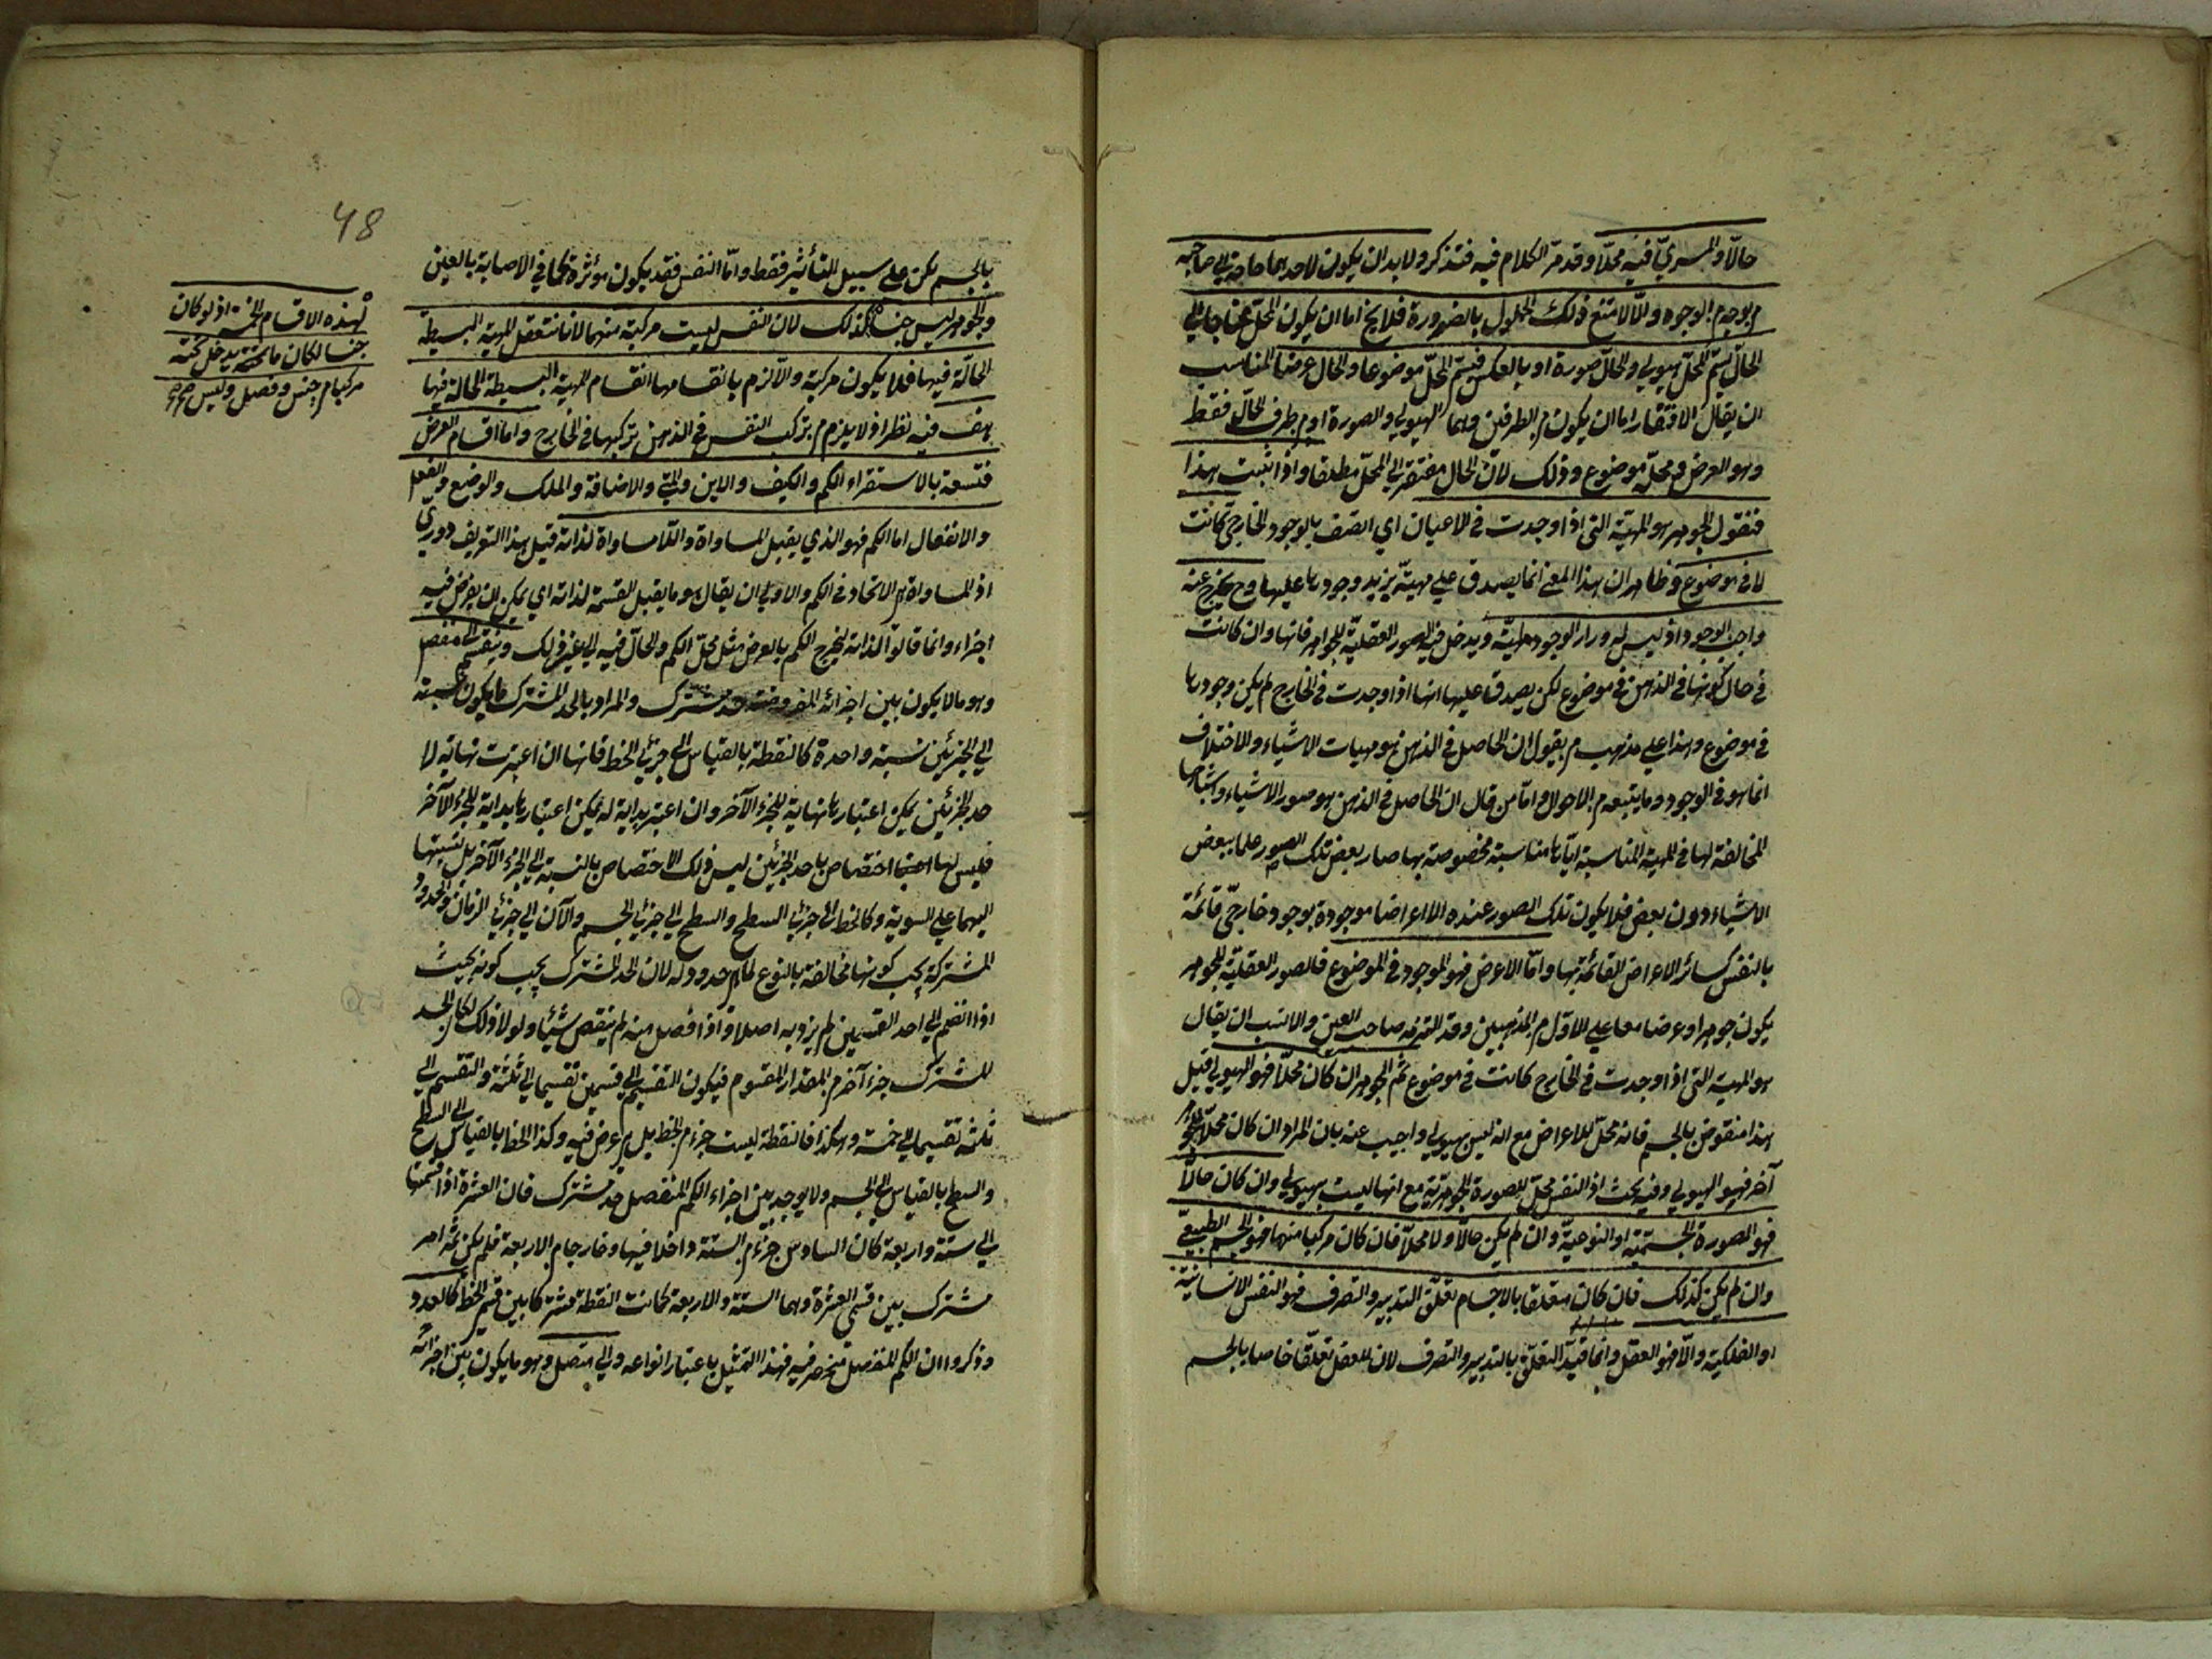 حالّا والمسريّ فيه محلّا وقد مرّ الكلام فيه فتذكر ولا بد ان يكون لاحدهما حاجة الي صاحبه
م بوجه م الوجوه والّا لامتنع ذلك الحلول بالضرورة فلا يخ اما ان يكون المحلّ محتاجا الي
الحالّ يسمّ المحلّ هيولي والحالّ صورة او بالعكس فيسمّ المحلّ موضوعا والحال عرضا المناسب
ان يقال الافتقار اما ان يكون م الطرفين وهما الهيولي والصورة او م طرف الحالّ فقط
وهو العرض ومحلّه موضوع وذلك لانّ الحال مفتقر الي المحلّ مطلقا واذا ثبت هذا
فنقول الجوهر هو المهيّة التي اذا وجدت في الاعيان اي اتصف بالوجود الخارجيّ كانت
لا في موضوع وظاهر ان هذا المعنے انما يصدق علي مهيّة يزيد وجودها عليها وح يخرج عنه
واجب الوجود اذ ليس له وراء الوجود مهيّة ويدخل فيه الصور العقليّة للجواهر فانها وان كانت
في حال كونها في الذهن في موضوع لكن يصدق عليها انها اذا وجدت في الخارج لم يكن وجودها
في موضوع وهذا علي مذهب م يقول ان الحاصل في الذهن هو مهيات الاشياء والاختلاف
انما هو في الوجود وما يتبعه م الاحوال واما من قال ان الحاصل في الذهن هو صور الاشياء واشباحها
المخالفة لها في المهية المناسبة ايّاها مناسبة مخصوصة بها صار بعض تلك الصور علما ببعض
الاشياء دون بعض فلا يكون تلك الصور عنده الا اعراضا موجودة بوجود خارجيّ قائمة
بالنفس كسائر الاعراض القائمة بها واما الاعرض فهو الموجود في الموضوع فالصور العقليّة للجوهر
يكون جوهرا وعرضا معا علي الاوّل م المذهبين وقد التزمه صاحب العين والانسب ان يقال
هو المهية التي اذا وجدت في الخارج كانت في موضوع ثم الجوهر ان كان محلّا فهو الهيولي قيل
هذا منقوض بالجسم فانه محلّ للاعراض مع انه ليس بهيولي واجيب عنه بان المراد ان كان محلّا لجوهر
آخر فهو الهيولي وفيه بحث اذ النفس محلّ للصورة الجوهريّة مع انها ليست بهيولي وان كان حالّا
فهو الصورة الجسميّة او النوعيّة وان لم يكن حالّا ولا محلّا فان كان مركبا منهما فهو الجسم الطبيعيّ
وان لم يكن كذلك فان كان متعلقا بالاجسام تعلّق التدبير والتصرف فهو النفس الانسانيّة
او الفلكيّة والّا فهو العقل وانما قيّد التعلّق بالتدبير والتصرف لان للعقل تعلّقا خاصا بالجسم
48
بالجسم يكن علي سبيل التأثير فقط وامّا النفس فقد يكون مؤثرة كما في الاصابة بالعين
والجوهر ليس جنسا لذلك لان النفس ليست مركبة منهما لانا نتعقل المهية البسيطة
الحالّة فيها فلا يكون مركبة والّا لزم بانقسامها انقسام المهية البسيطة الحالة فيها
هف فيه نظر اذ لا يلزم م تركب النفس في الذهن تركبها في الخارج واما اقسام العرض
فتسعة بالاستقراء الكم والكيف والاين والمتي والاضافة والملك والوضع والفعل
والانفعال اما الكم فهو الذي يقبل المساواة واللامساواة لذاته قيل هذا التعريف دوري
اذ المساواة هي الاتحاد في الكم والاولي ان يقال هو ما يقبل القسمة لذاته اي يمكن ان يفرض فيه
اجزاء وانما قالوا لذاته ليخرج الكم بالعرض مثل محلّ الكم والحالّ فيه الي غير ذلك وينقسم الي منفصل
وهو ما لا يكون بين اجزائه المفروضة حد مشترك والمراد بالحد المشترك ما يكون نسبته
الي الجزئين نسبة واحدة كالنقطة بالقياس الي جزئي الخط فانها ان اعتبرت نهاية لا
حد الجزئين يمكن اعتبارها نهاية للجزء الآخر وان اعتبر بداية له يمكن اعتبارها بداية للجزء الآخر
فليس لها اختصاص باحد الجزئين ليس ذلك الاختصاص بالنسبة الي الجزء الآخر بل نسبتها
اليهما علي السوية وكالخط الي جزئي السطح والسطح الي جزئي الجسم والآن الي جزئي الزمان والحدود
المشتركة يجب كونها مخالفة بالنوع لما هي حدود له لان الحد المشترك يجب كونه بحيث
اذا انضم الي احد القسمين لم يزد به اصلا واذا فصل منه لم ينقص شيئا ولولا ذلك لكان الحد
المشترك جزء آخر م المقدار المقسوم فيكون التقسيم الي قسمين تقسيما الي ثلثة والتقسيم الي
ثلثة تقسيما الي خمسة وهكذا فالنقطة ليست جزء م الخط بل هي عرض فيه وكذا الخط بالقياس الي السطح
والسطح بالقياس الي الجسم ولا يوجد بين اجزاء الكم المنفصل حد مشترك فان العشرة اذا قسمتها
الي ستة واربعة كان السادس جزء م الستة داخلا فيها وخارجا م الاربعة فلم يكن ثمه امر
مشترك بين قسمي العشرة وهما الستة والاربعة كما كانت النقطة مشتركا بين قسمي الخط كالعدد
وذكروا ان الكم المنفصل منحصر فيه فهذا التمثيل باعتبار انواعه والي متصل وهو ما يكون بين اجزائه
لهذه الاقسام الخمسة اذ لو كان
جنسا لكان ما يدخل تحته
مركبا م جنس وفصل وليس